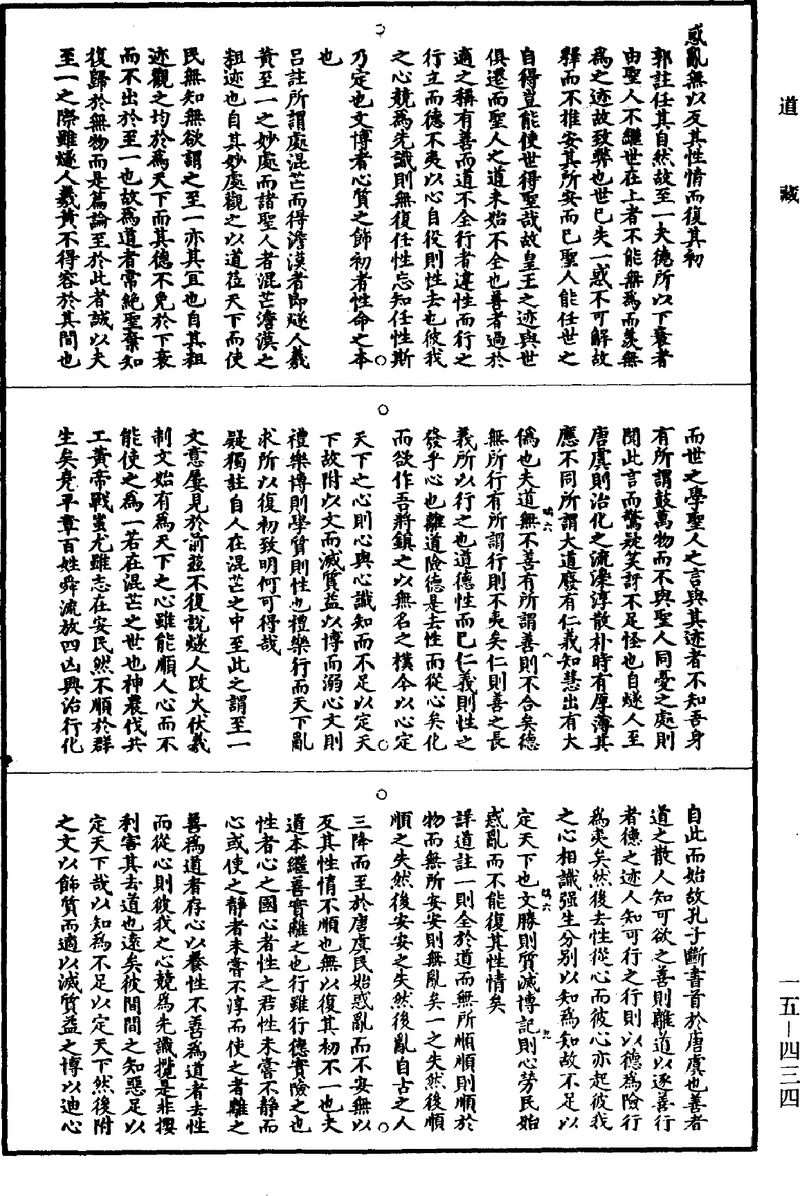 道藏
惑亂無以反其性情而復其初
郭註任其自然故至一夫德所以下衰者
由聖人不繼世在上者不能無為而羨無
為之迹故致弊也世已失一惑不可解故
釋而不推安其所安而已聖人能任世之
自得豈能使世得聖哉故皇王之迹與世
俱遷而聖人之道未始不全也善者過於
適之稱有善而道不全行者違性而行之
行立而德不夷以心自役則性去也彼我
之心競為先識則無復任性忘知任性斯
乃定也文博者心質之飾初者性命之本
也
呂註所謂處混芒而得澹漠者即燧人羲
黃至一之妙處而諸聖人者混芒澹漠之
粗迹也自其妙處觀之以道莅天下而使
民無知無欲謂之至一亦其宜也自其粗
迹觀之均於為天下而其德不免於下衰
而不出於至一也故為道者常絕聖棄知
復歸於無物而是篇論至於此者誠以夫
至一之際雖燧人羲黃不得容於其間也
而世之學聖人之言與其迹者不知吾身
有所謂鼓萬物而不與聖人同憂之處則
聞此言而驚疑笑訝不足怪也自燧人至
唐虞則治化之流澆淳散朴時有厚薄其
應不同所謂大道廢有仁義知慧出有大
偽也夫道無不善有所謂善則不合矣德
無所行有所謂行則不夷矣仁則善之長
義所以行之也道德性而已仁義則性之
發乎心也離道險德是去性而從心矣化
而欲作吾將鎮之以無名之樸今以心定
天下之心則心與心識知而不足以定天
下故附以文而滅質益以博而溺心文則
禮樂博則學質則性也禮樂行而天下亂
求所以復初致明何可得哉
疑獨註自人在混芒之中至此之謂至一
文意屢見於前茲不復說燧人改火伏羲
制文始有為天下之心雖能順人心而不
能使之為一若在混芒之世也神農伐共
工黃帝戰蚩尤雖志在安民然不順於群
生矣堯平章百姓舜流放四凶興治行化
自此而始故孔子斷書首於唐虞也善者
道之散人知可欲之善則離道以逐善行
者德之迹人知可行之行則以德為險行
為夷矣然後去性從心而彼心亦起彼我
之心相識强生分別以知為知故不足以
定天下也文勝則質滅博記則心勞民始
惑亂而不能復其性情矣
詳道註一則全於道而無所順順則順於
物而無所安安則無亂矣一之失然後順
順之失然後安安之失然後亂自古之人
三降而至於唐虞民始惑亂而不安無以
反其性情不順也無以復其初不一也夫
道本繼善實離之也行雖行德實險之也
性者心之國心者性之君性未嘗不靜而
心或使之靜者未嘗不淳而使之者離之
善為道者存心以養性不善為道者去性
而從心則彼我之心競為先識攬是非攖
利害其去道也遠矣彼間間之知惡足以
定天下哉以知為不足以定天下然後附
之文以飾質而適以滅質益之博以迪心
一五—四三四